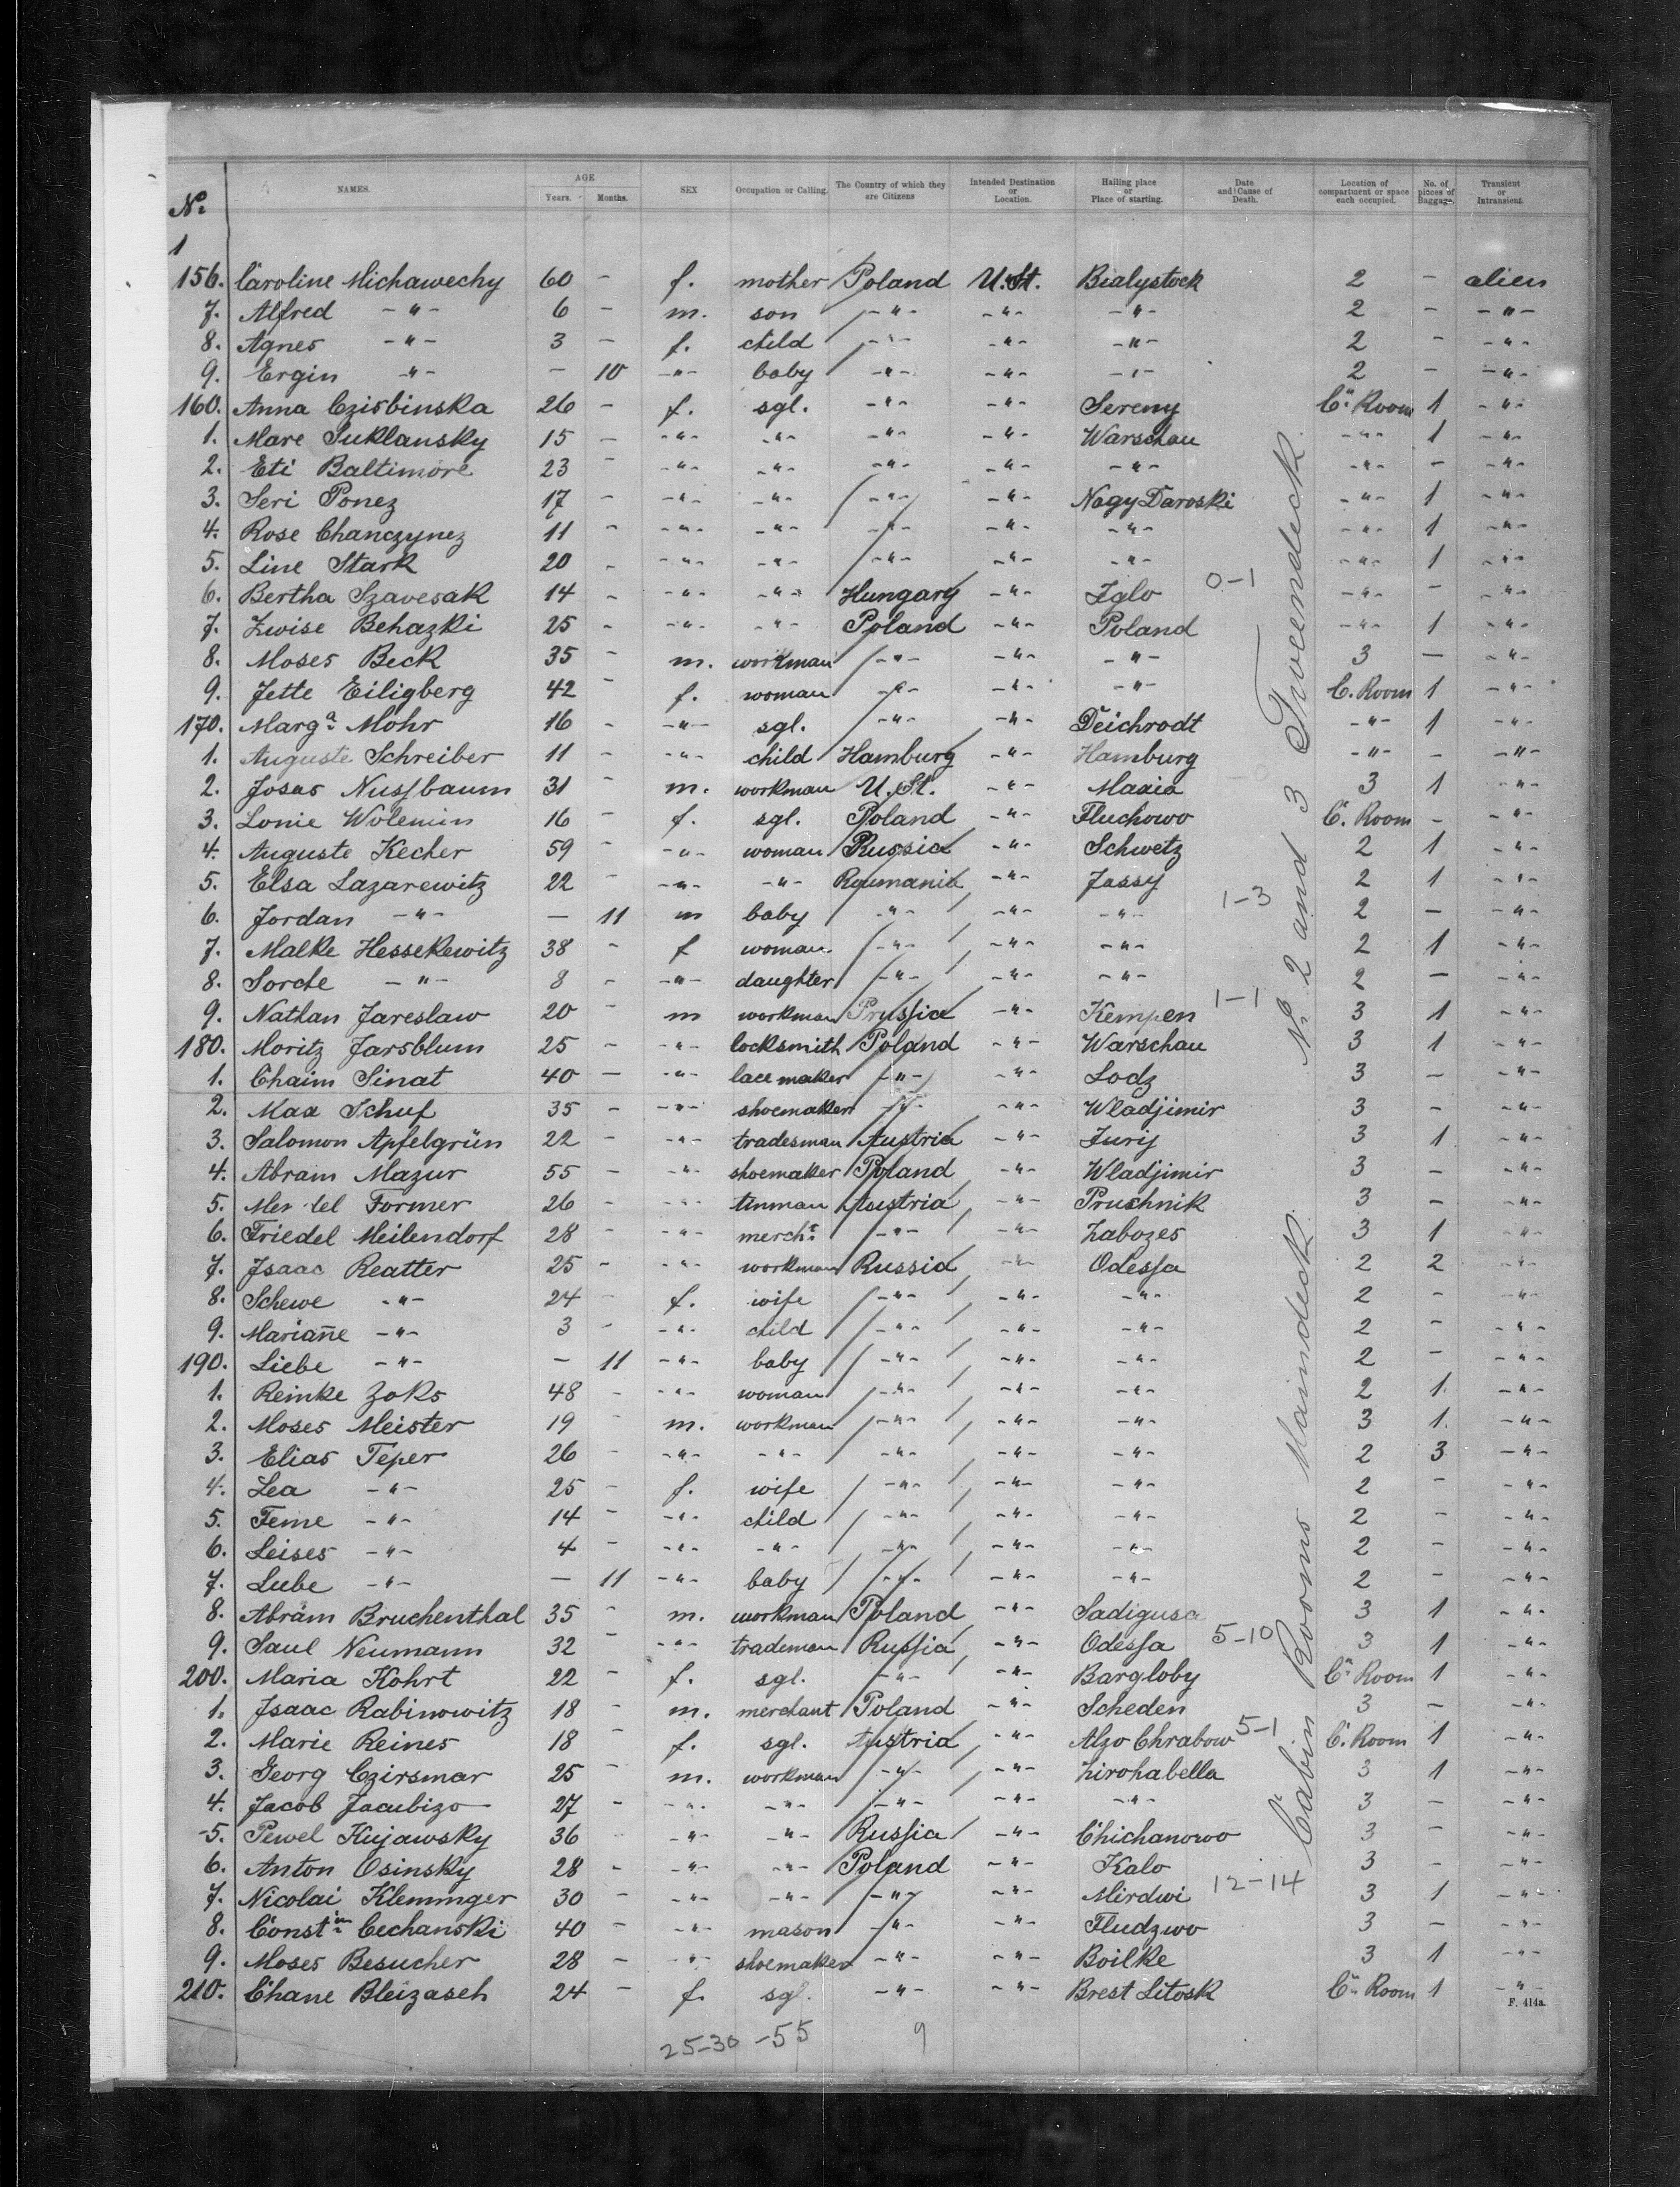 NAMES. AGE. Years. Months. SEX Occupation or Calling. The Country of which they are Citizens Intended Destination or Location. Hailing place or Place of starting. Date and Cause of Death. Location of compartment or space each occupied. No. of pieces of Baggage. Transient or Intransient.
No.
1
156. Caroline Michawechy 60 - f. mother Poland U.St. Bialystock 2 - alien
7. Alfred -"- 6 - m. son -"- -"- -"- 2 - -"-
8. Agnes -"- 3 - f. child -"- -"- -"- 2 - -"-
9. Ergin -"- - 10 -"- baby -"- -"- -"- 2 - -"-
160. Anna Czisbinska 26 - f. sgl. -"- -"- Sereny C. Room 1 -"-
1. Mare Suklansky 15 - -"- -"- -"- -"- Warschau -"- 1 -"-
2. Eti Baltimore 23 - -"- -"- -"- -"- -"- -"- - -"-
3. Seri Ponez 17 - -"- -"- -"- -"- Nagy Daroski -"- 1 -"-
4. Rose Chanczynez 11 - -"- -"- -"- -"- -"- -"- 1 -"-
5. Line Stark 20 - -"- -"- -"- -"- -"- -"- 1 -"-
6. Bertha Szavesak 14 - -"- -"- Hungary -"- Iglo 0-1 -"- - -"-
7. Zwise Behazki 25 - -"- -"- Poland -"- Poland -"- 1 -"-
8. Moses Beck 35 - m. workman -"- -"- -"- 3 - -"-
9. Jette Eiligberg 42 - f. woman -"- -"- -"- C. Room 1 -"-
170. Marga Mohr 16 - -"- sgl. -"- -"- Deichrodt -"- 1 -"-
1. Auguste Schreiber 11 - -"- child Hamburg -"- Hamburg -"- - -"-
2. Josas Nussbaum 31 - m. workman U.St. -"- Maaia 3 1 -"-
3. Lonie Wolemin 16 - f. sgl. Poland -"- Fluchowo C. Room - -"-
4. Auguste Kecher 59 - -"- woman Russia -"- Schwetz 2 1 -"-
5. Elsa Lazarewitz 22 - -"- -"- Roumania -"- Jassy 2 1 -"-
6. Jordan -"- - 11 m baby -"- -"- -"- 1-3 2 - -"-
7. Malke Hessekewitz 38 - f woman -"- -"- -"- 2 1 -"-
8. Sorche -"- 8 - -"- daughter -"- -"- -"- 2 - -"-
9. Nathan Jareslaw 20 - m workman Prussia -"- Kempen 1-1 3 1 -"-
180. Moritz Jarsblum 25 - -"- locksmith Poland -"- Warschau 3 1 -"-
1. Chaim Sinat 40 - -"- lacemaker -"- -"- Lodz 3 - -"-
2. Max Schuf 35 - -"- shoemaker -"- -"- Wladjimir 3 - -"-
3. Salomon Apfelgrün 22 - -"- tradesman Austria -"- Jurij 3 1 -"-
4. Abram Mazur 55 - -"- shoemaker Poland -"- Wladjimir 3 - -"-
5. Mendel Former 26 - -"- tinman Austria -"- Pruchnik 3 - -"-
6. Friedel Meilendorf 28 - -"- mercht -"- -"- Zabozes 3 1 -"-
7. Isaac Reatter 25 - -"- workman Russia -"- Odessa 2 2 -"-
8. Schewe -"- 24 - f. wife -"- -"- -"- 2 - -"-
9. Marianne -"- 3 - -"- child -"- -"- -"- 2 - -"-
190. Liebe -"- - 11 -"- baby -"- -"- -"- 2 - -"-
1. Reinke Zoks 48 - -"- woman -"- -"- -"- 2 1. -"-
2. Moses Meister 19 - m. workman -"- -"- -"- 3 1. -"-
3. Elias Teper 26 - -"- -"- -"- -"- -"- 2 3 -"-
4. Lea -"- 25 - f. wife -"- -"- -"- 2 - -"-
5. Feme -"- 14 - -"- child -"- -"- -"- 2 - -"-
6. Leises -"- 4 - -"- -"- -"- -"- -"- 2 - -"-
7. Lube -"- - 11 -"- baby -"- -"- -"- 2 - -"-
8. Abram Bruchenthal 35 - m. workman Poland -"- Sadigusa 3 1 -"-
9. Saul Neumann 32 -"- trademan Russia -"- Odessa 5-10 3 1 -"-
200. Maria Kohrt 22 - f. sgl. -"- -"- Bargloby C. Room 1 -"-
1. Isaac Rabinowitz 18 - m. merchant Poland -"- Scheden 3 - -"-
2. Marie Reines 18 - f. sgl. Austria -"- Alzo Chrabow 5-1 C. Room 1 -"-
3. Georg Czirsmar 25 - m. workman -"- -"- Zirohabella 3 1 -"-
4. Jacob Jacubizo 27 - -"- -"- -"- -"- -"- 3 - -"-
5. Pewel Kujawsky 36 -"- -"- Russia -"- Chichanowo 3 - -"-
6. Anton Osinsky 28 - -"- -"- Poland -"- Kalo 3 - -"-
7. Nicolai Klemmger 30 - -"- -"- -"- -"- Mirdwi 12-14 3 1 -"-
8. Constin Cechanski 40 - -"- mason -"- -"- Fludzwo 3 - -"-
9. Moses Besucher 28 - -"- shoemaker -"- -"- Boilke 3 1 -"-
210. Chane Bleizaseh 24 - f. sgl. -"- -"- Brest Litosk C. Room 1 -"-
F. 414a.
25-30 -55 9
Cabin Rooms Maindeck No. 2 and 3 Tweendeck